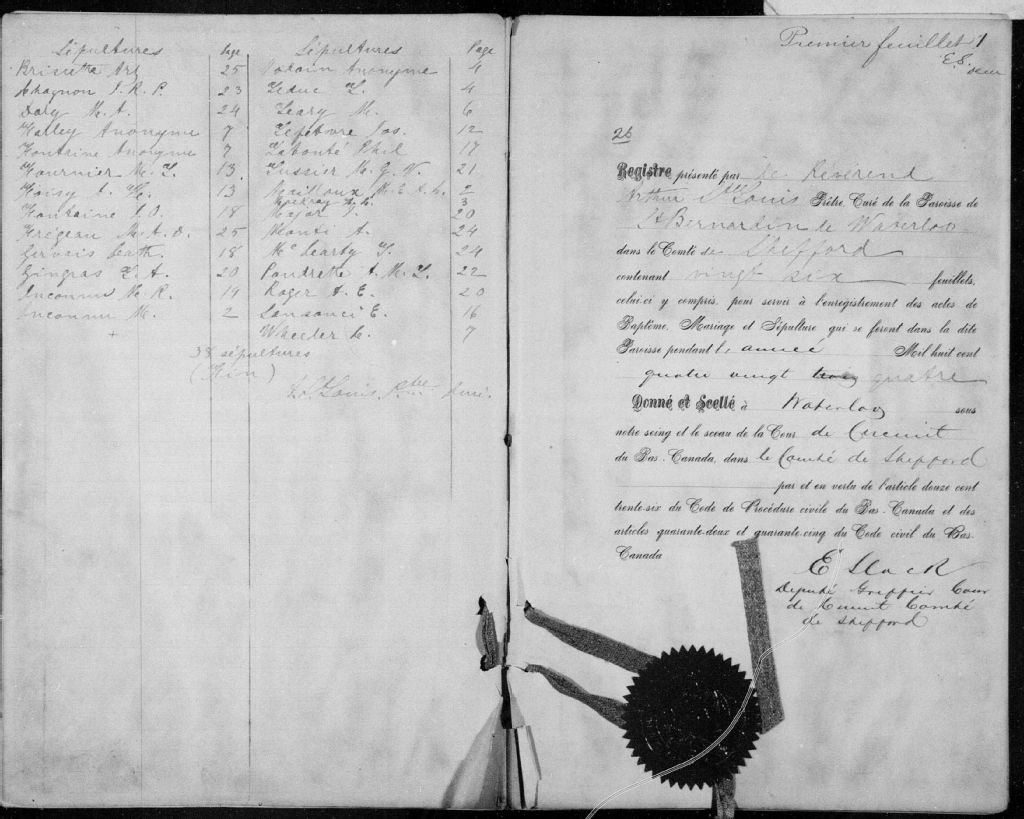 Sépultures Page Sépultures Page
Brisette Art 25 Anonyme 4
Chagnon J. R. P. 23 Leduc L. 4
Dary M. A. 24 Leary M. 6
Halley Anonyme 7 Lefebvre Jos. 12
Fontaine Anonyme 7 Labonté Phil 17
Fournier M. L. 13 Lussier M. G. N. 21
Foisy A. H. 13 Mailloux M. E. A. L. 2
3
Fontaine J. O. 18 Major J. 20
Frégeau M. A. O. 25 Monti A. 24
Gervais Cath. 18 Mc Carty J. 24
Gingras L. A. 20 Poudrette A. M. L. 22
Inconnu M. R. 19 Roger A. E. 20
Inconnu M. 2 Sansouci E. 16
+ Wheeler L. 7
38 sépultures
(Fin)
St. Louis Ptre Curé.
Premier feuillet 1
E.S.
26
Registre présenté par le Révérend
Arthur St Louis Prêtre Curé de la Paroisse de
St Bernardin de Waterloo
dans le Comté de Shefford
contenant vingt six feuillets,
celui-ci y compris, pour servir à l'enregistrement des actes de
Baptême, Mariage et Sépulture qui se feront dans la dite
Paroisse pendant l'année Mil huit cent
quatre vingt trois quatre
Donné et Scellé à Waterloo sous
notre seing et le sceau de la Cour de Circuit
du Bas-Canada, dans le Comté de Shefford
par et en vertu de l'article douze cent
trente-six du Code de Procédure civile du Bas-Canada et des
articles quarante-deux et quarante-cinq du Code civil du Bas-
Canada
E Slack
Député Greffier Cour
de Circuit Comté
de Shefford